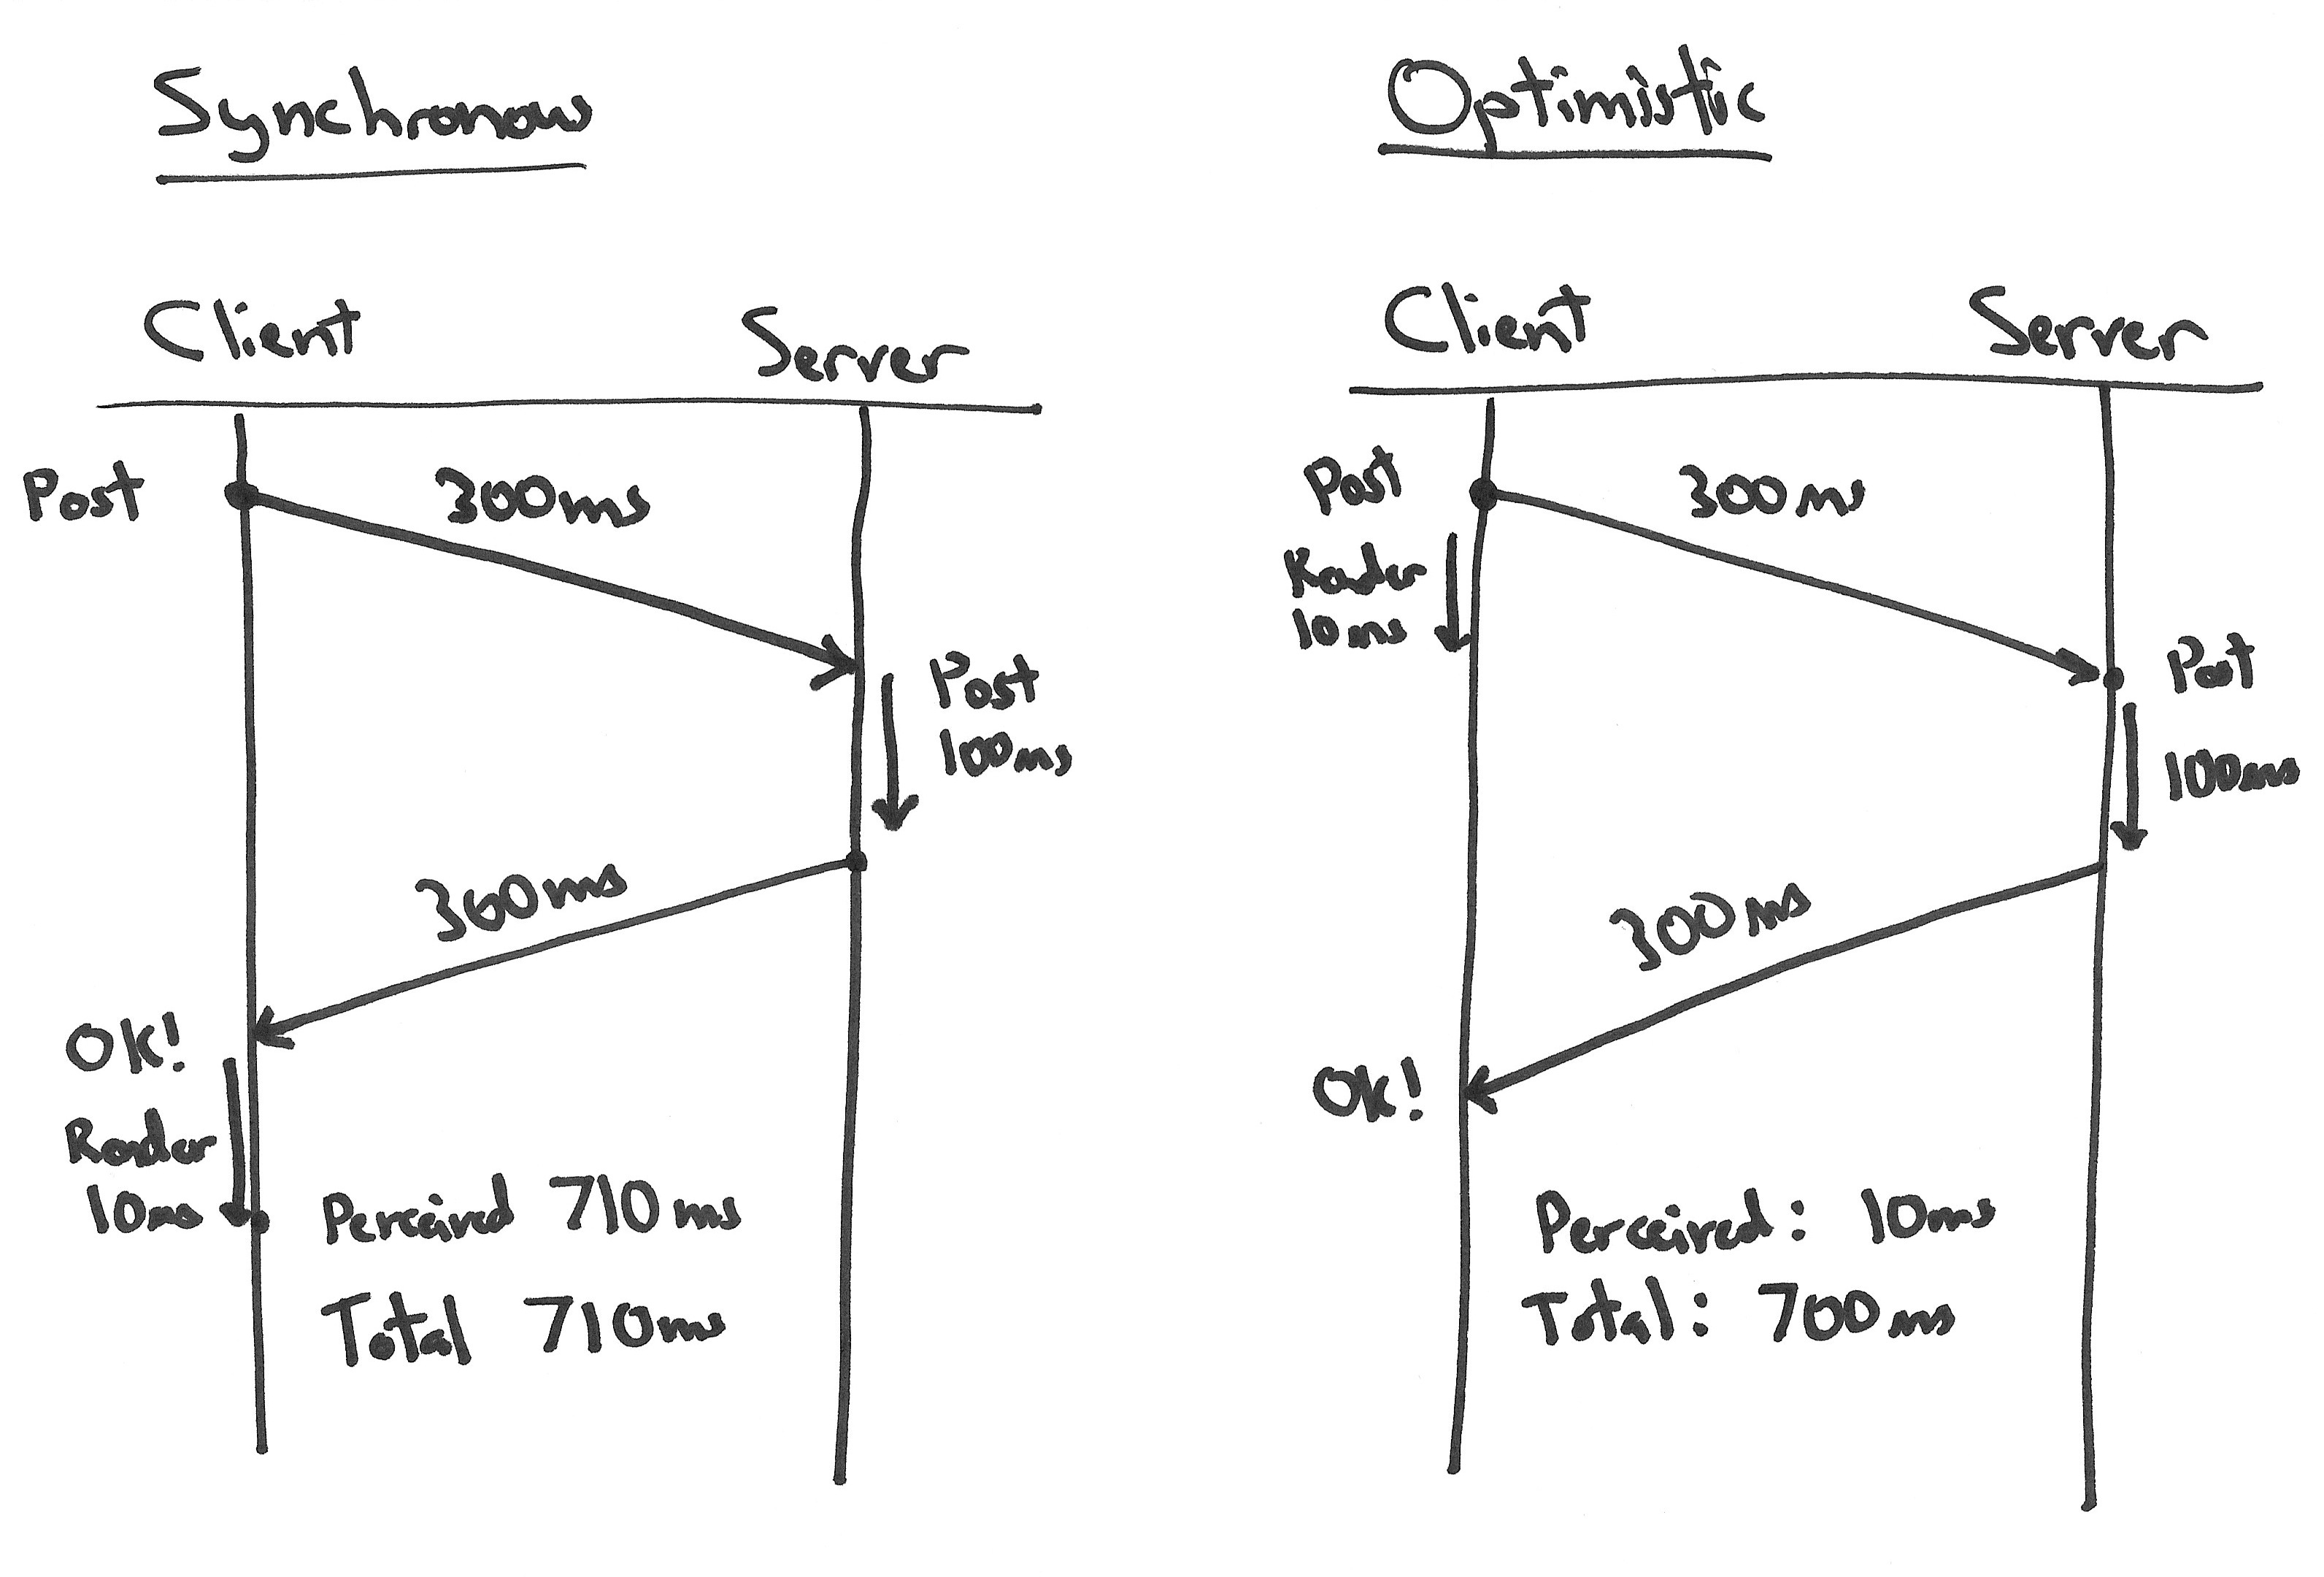 Synchronous
Client
Server
Post
300ms
Post
100ms
300ms
OK!
Render
10ms
Perceived 710ms
Total 710ms
Optimistic
Client
Server
Post
300ms
Render
10ms
Post
100ms
300ms
OK!
Perceived: 10ms
Total: 700ms